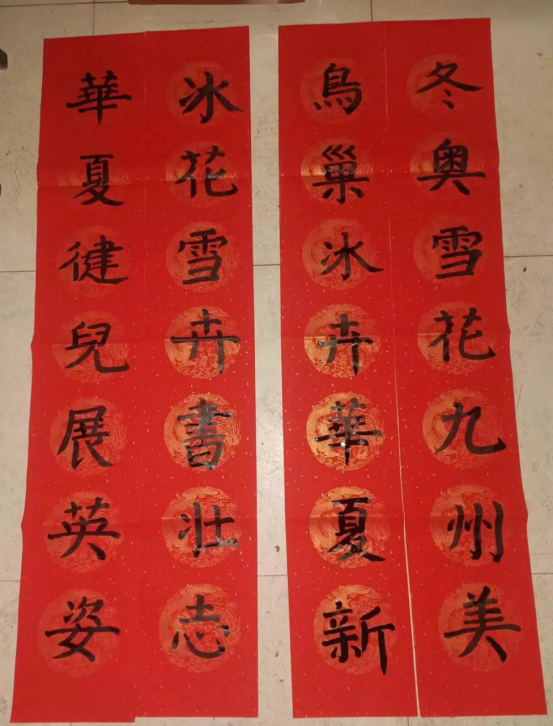 冬奥雪花九州美
鳥巢冰卉華夏新
冰花雪卉書壮志
華夏健兒展英姿